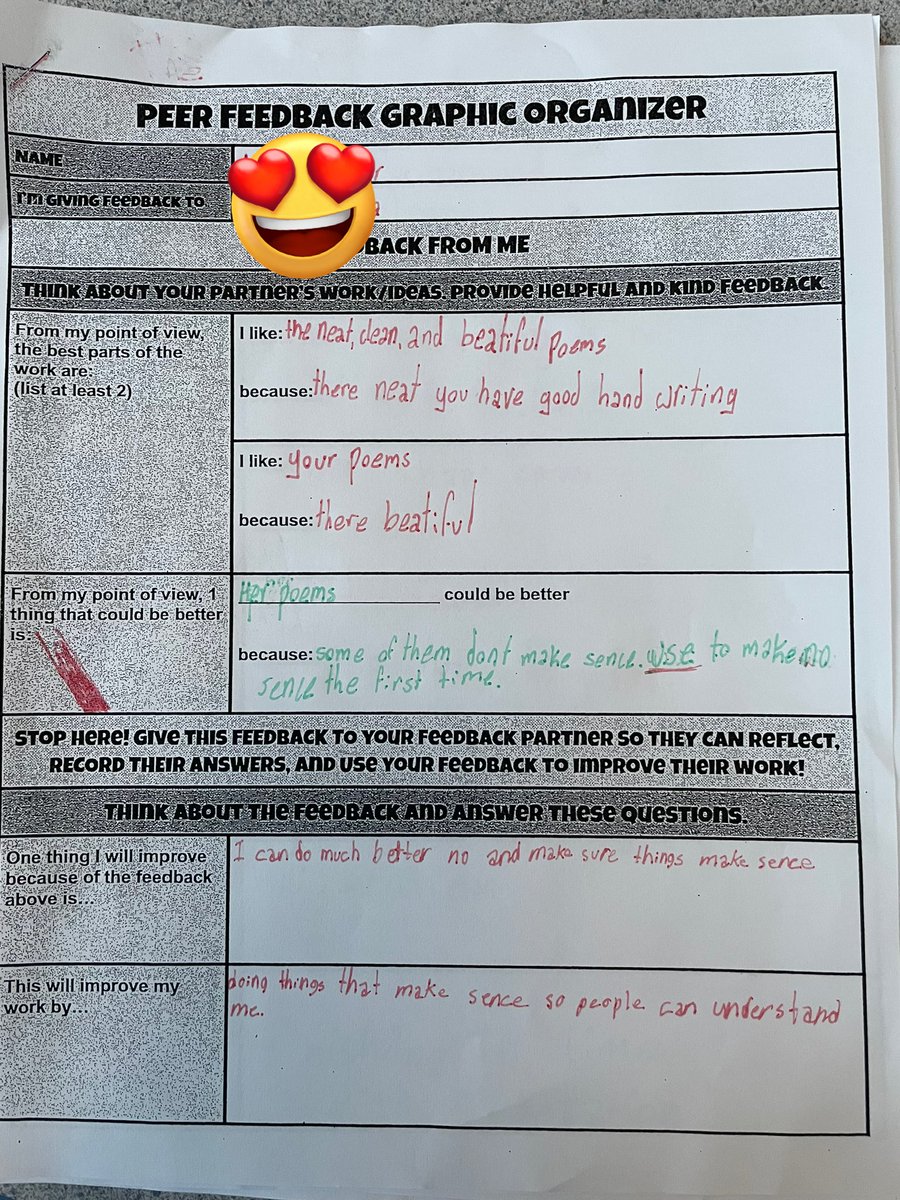 PEER FEEDBACK GRAPHIC ORGANIZER
NAME
I'M GIVING FEEDBACK TO
BACK FROM ME
THINK ABOUT YOUR PARTNER'S WORK/IDEAS. PROVIDE HELPFUL AND KIND FEEDBACK.
From my point of view,
the best parts of the
work are:
(list at least 2)
I like: the neat, clean, and beatiful poems
because: there neat you have good hand writing
I like: your poems
because: there beatiful
From my point of view, 1
thing that could be better
is:
Her poems could be better
because: some of them dont make sence. use to make no
sence the first time.
STOP HERE! GIVE THIS FEEDBACK TO YOUR FEEDBACK PARTNER SO THEY CAN REFLECT,
RECORD THEIR ANSWERS, AND USE YOUR FEEDBACK TO IMPROVE THEIR WORK!
THINK ABOUT THE FEEDBACK AND ANSWER THESE QUESTIONS.
One thing I will improve
because of the feedback
above is...
I can do much better no and make sure things make sence
This will improve my
work by...
doing things that make sence so people can understand
me.